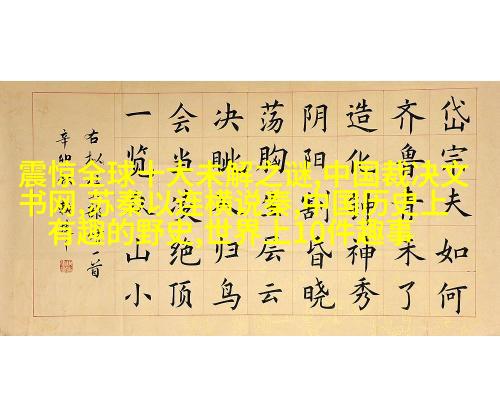 岱宗夫如何
齐鲁青未了
造化钟神秀
阴阳割昏晓
荡胸生层云
决眦入归鸟
会当凌绝顶
一览众山小
震惊全球十大未解之谜,中国裁决文
书网,苏秦以连横说秦,中国历史上
有趣的野史,世界上10件趣事